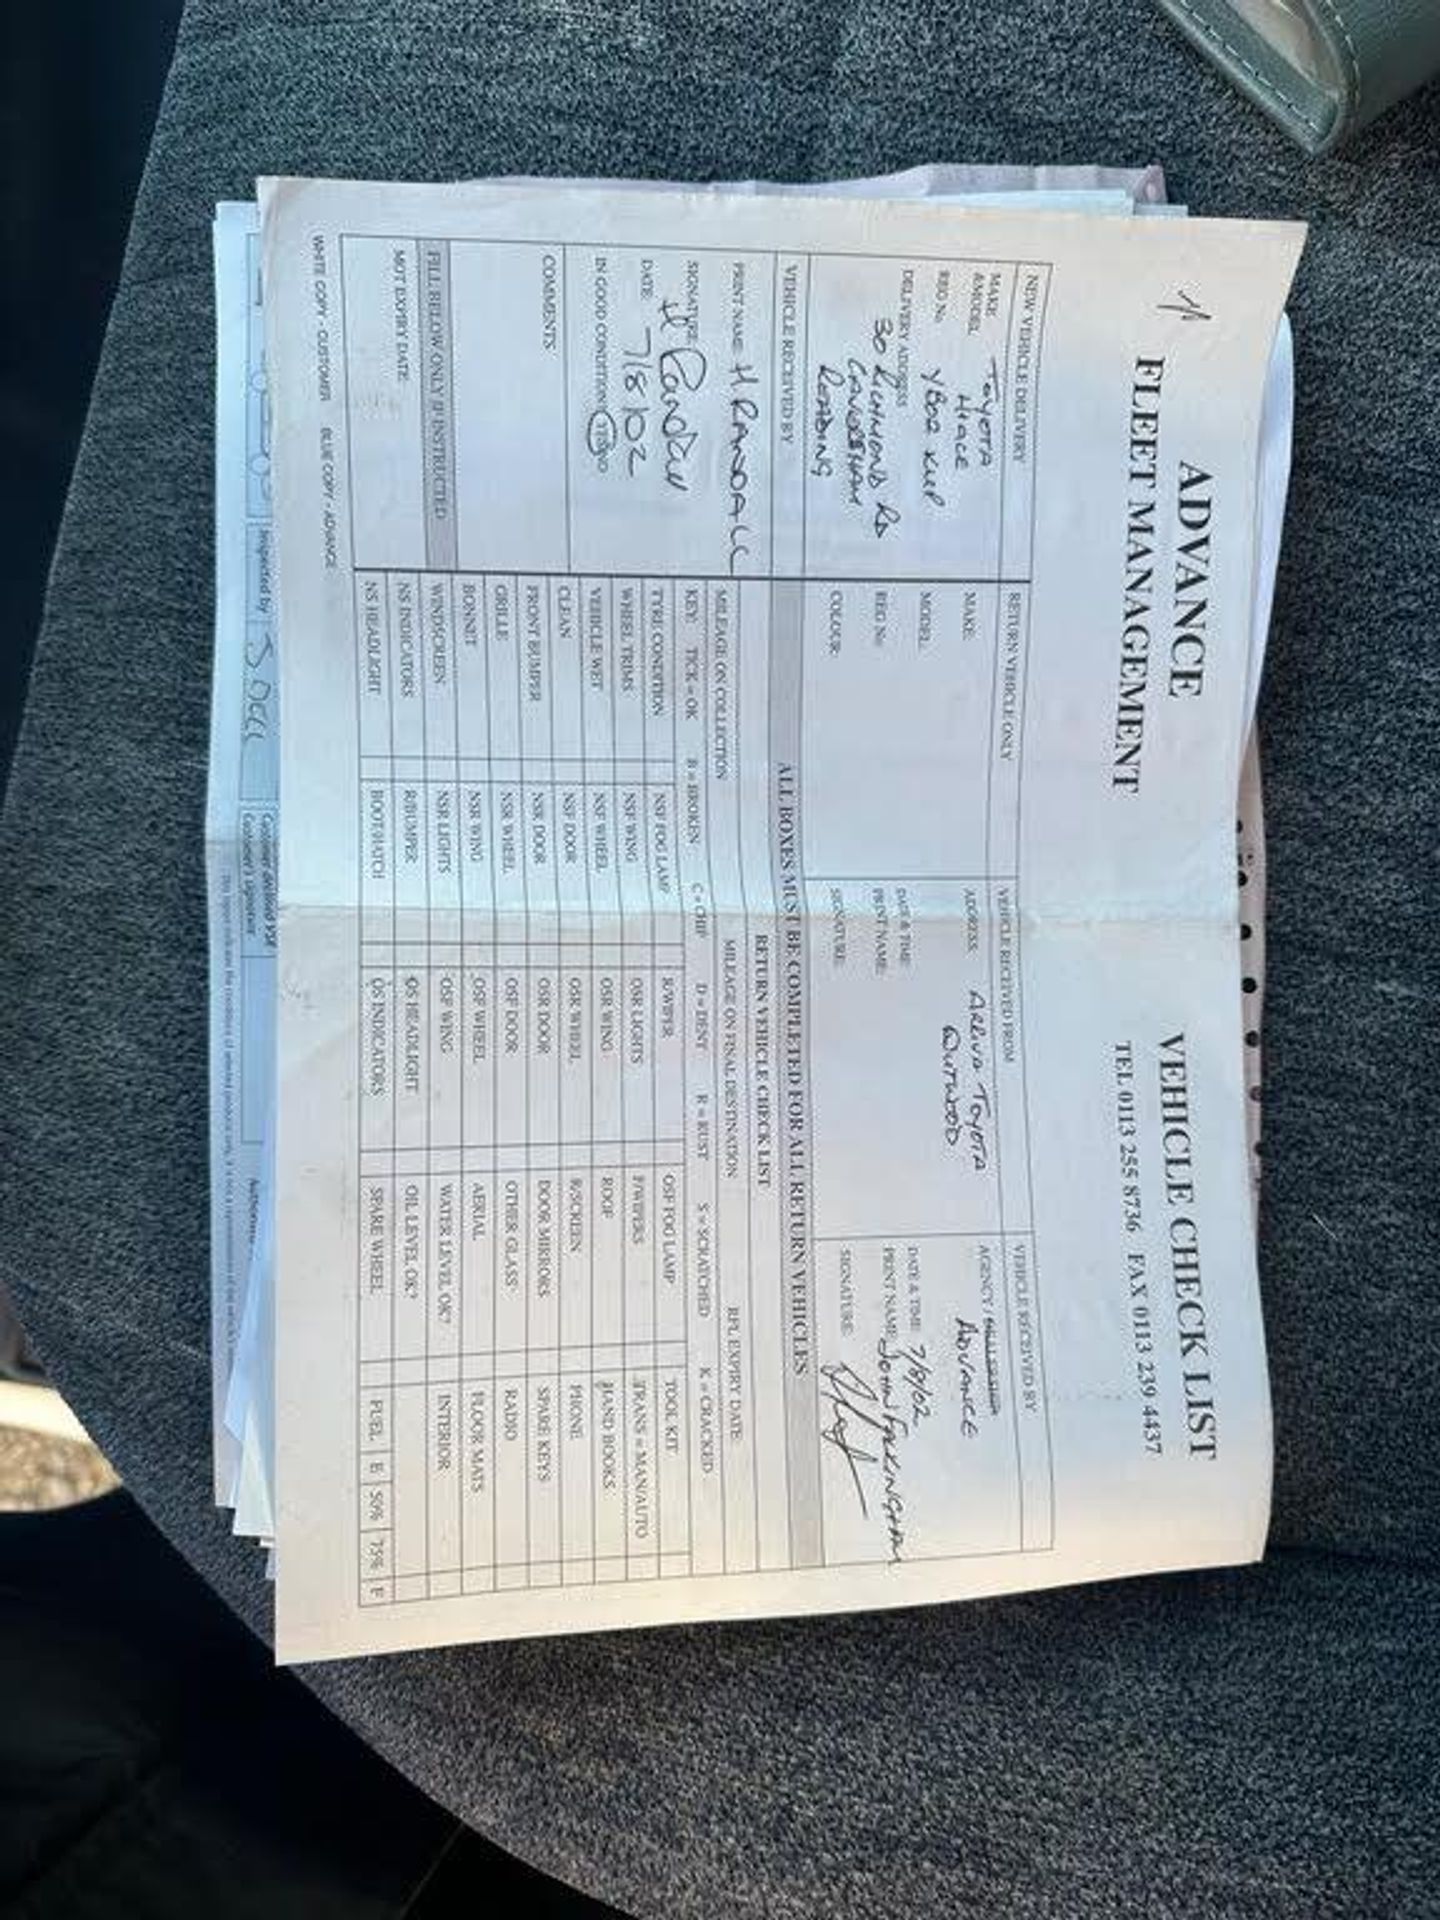 ADVANCE
FLEET MANAGEMENT
VEHICLE CHECK LIST
TEL 0113 255 8736 FAX 0113 239 4437
NEW VEHICLE DELIVERY
MAKE
&MODEL
TOYOTA
HIACE
REG No
YB02 KUP
DELIVERY ADDRESS
30 RICHMOND RD
CAVERSHAM
READING
RETURN VEHICLE ONLY
MAKE
MODEL
REG No
COLOUR:
VEHICLE RECEIVED FROM
ADDRESS: ARRIVA TOYOTA
OUTWOOD
DATE & TIME:
PRINT NAME:
SIGNATURE:
VEHICLE RECEIVED BY
AGENCY /
ADVANCE
DATE & TIME: 7/8/02
PRINT NAME: JOHN FALKINGHAM
SIGNATURE:
VEHICLE RECEIVED BY
PRINT NAME: H RANDALL
SIGNATURE: H Randall
DATE: 7/8/02
IN GOOD CONDITION YES/NO
COMMENTS
FILL BELOW ONLY IF INSTRUCTED
MOT EXPIRY DATE:
ALL BOXES MUST BE COMPLETED FOR ALL RETURN VEHICLES
RETURN VEHICLE CHECK LIST
MILEAGE ON COLLECTION MILEAGE ON FINAL DESTINATION RFL EXPIRY DATE:
KEY: TICK = OK B = BROKEN C = CHIP D = DENT R = RUST S = SCRATCHED K = CRACKED
TYRE CONDITION NSF FOG LAMP R/WIPER OSF FOG LAMP TOOL KIT
WHEEL TRIMS NSF WING OSR LIGHTS F/WIPERS TRANS = MAN/AUTO
VEHICLE WET NSF WHEEL OSR WING ROOF HAND BOOKS
CLEAN NSF DOOR OSR WHEEL R/SCREEN PHONE
FRONT BUMPER NSR DOOR OSR DOOR DOOR MIRRORS SPARE KEYS
GRILLE NSR WHEEL OSF DOOR OTHER GLASS RADIO
BONNET NSR WING OSF WHEEL AERIAL FLOOR MATS
WINSCREEN NSR LIGHTS OSF WING WATER LEVEL OK? INTERIOR
NS INDICATORS R/BUMPER OS HEADLIGHT OIL LEVEL OK?
NS HEADLIGHT BOOT/HATCH OS INDICATORS SPARE WHEEL FUEL E 50% 75% F
WHITE COPY - CUSTOMER BLUE COPY - ADVANCE
Inspected by
Customer's signature